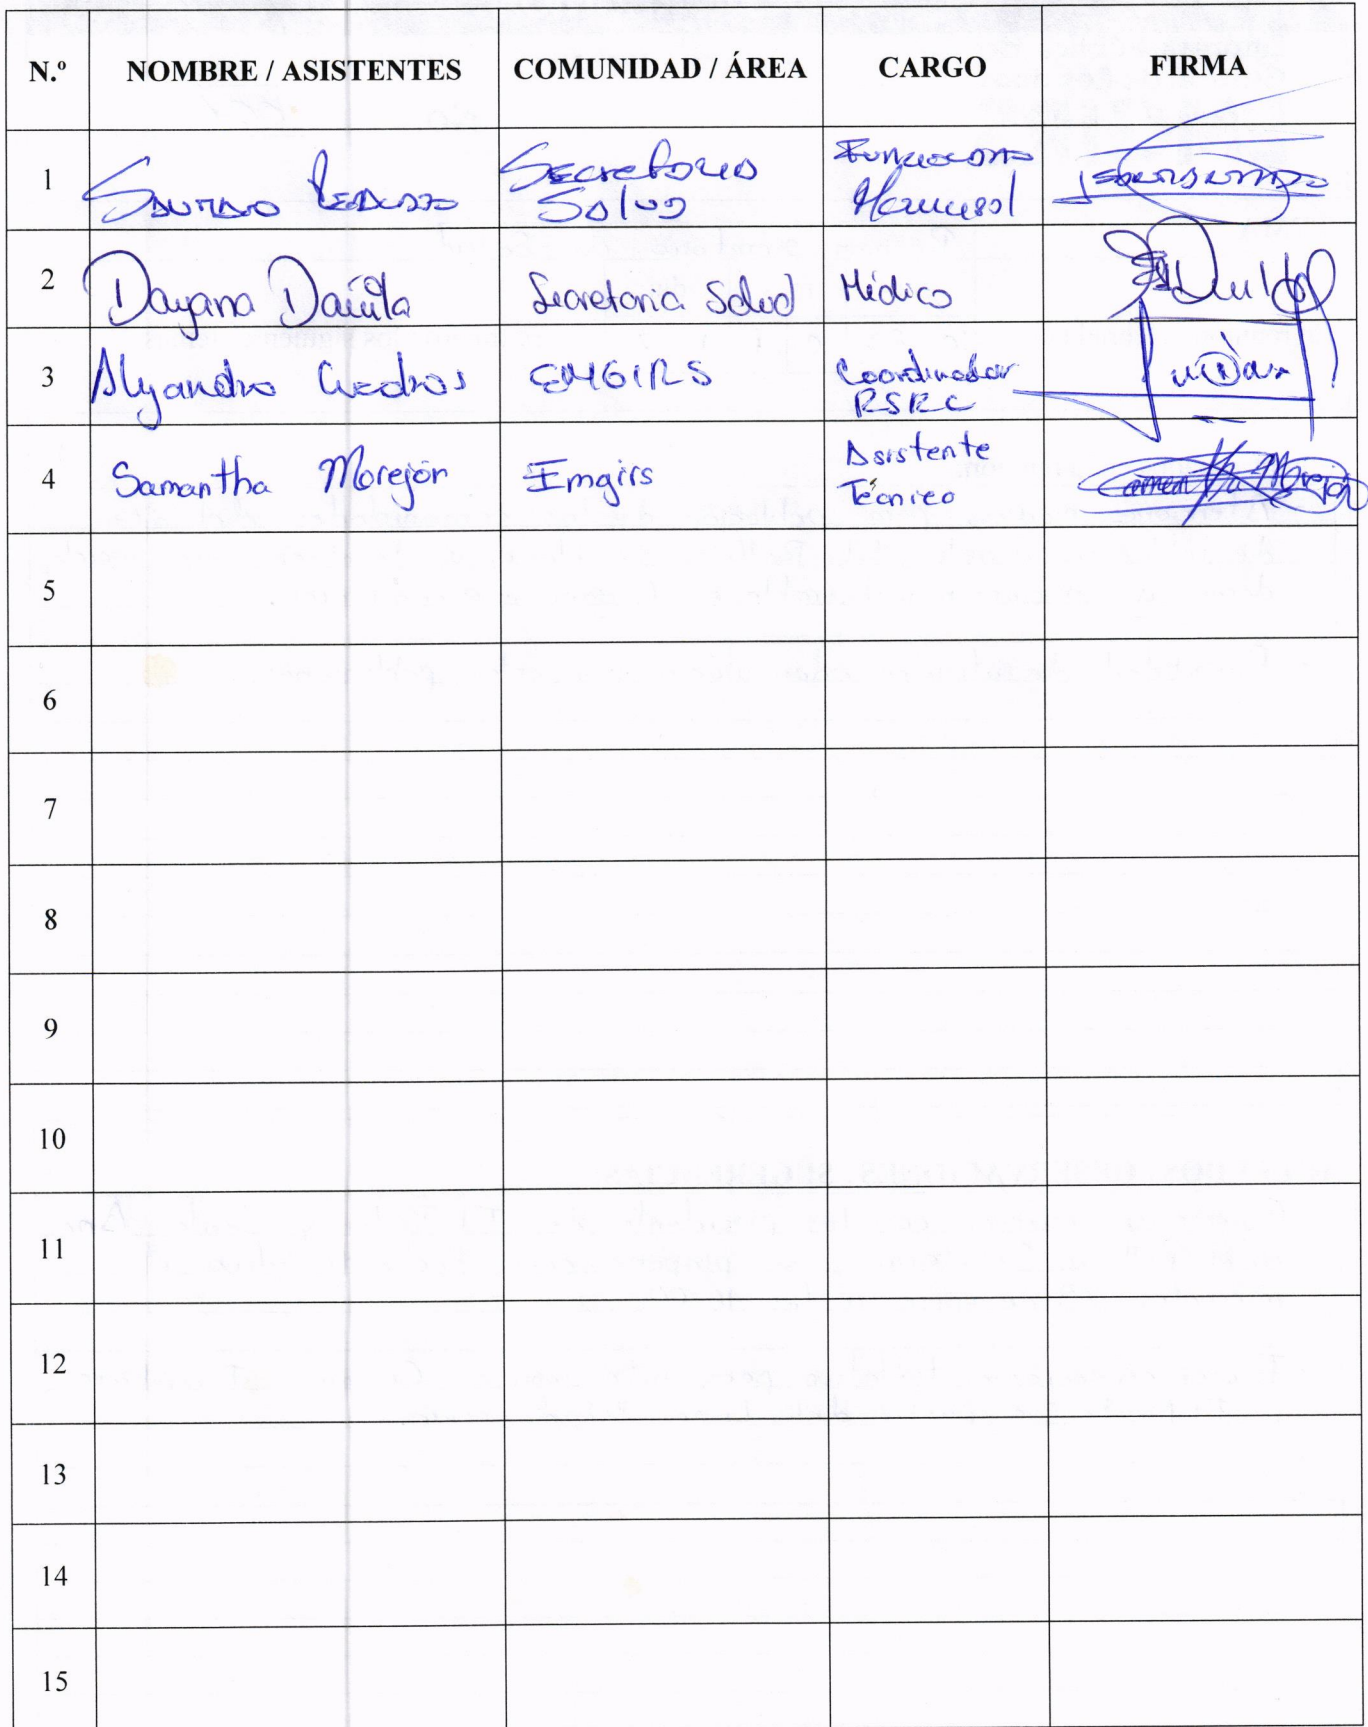 N.º NOMBRE / ASISTENTES COMUNIDAD / ÁREA CARGO FIRMA
1 Secretaria Salud Funcionario Municipal
2 Dayana Dávila Secretaria Salud Médico
3 Alejandro Cuadros EMGIRS Coordinador RSRC
4 Samantha Morejón Emgirs Asistente Técnico Samantha Morejón
5
6
7
8
9
10
11
12
13
14
15